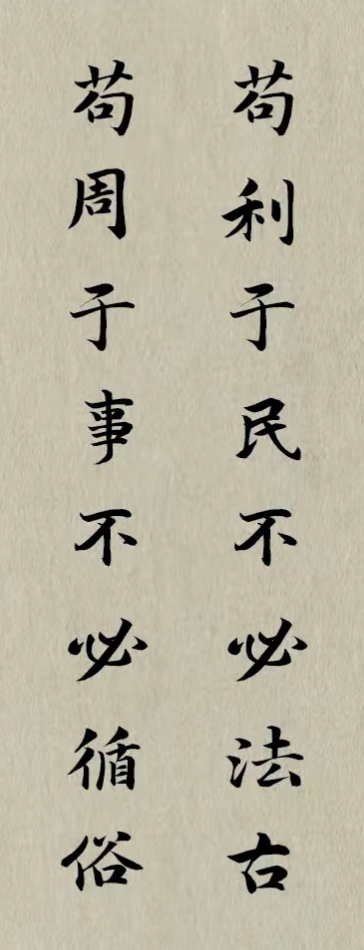 苟利于民不必法古
苟周于事不必循俗